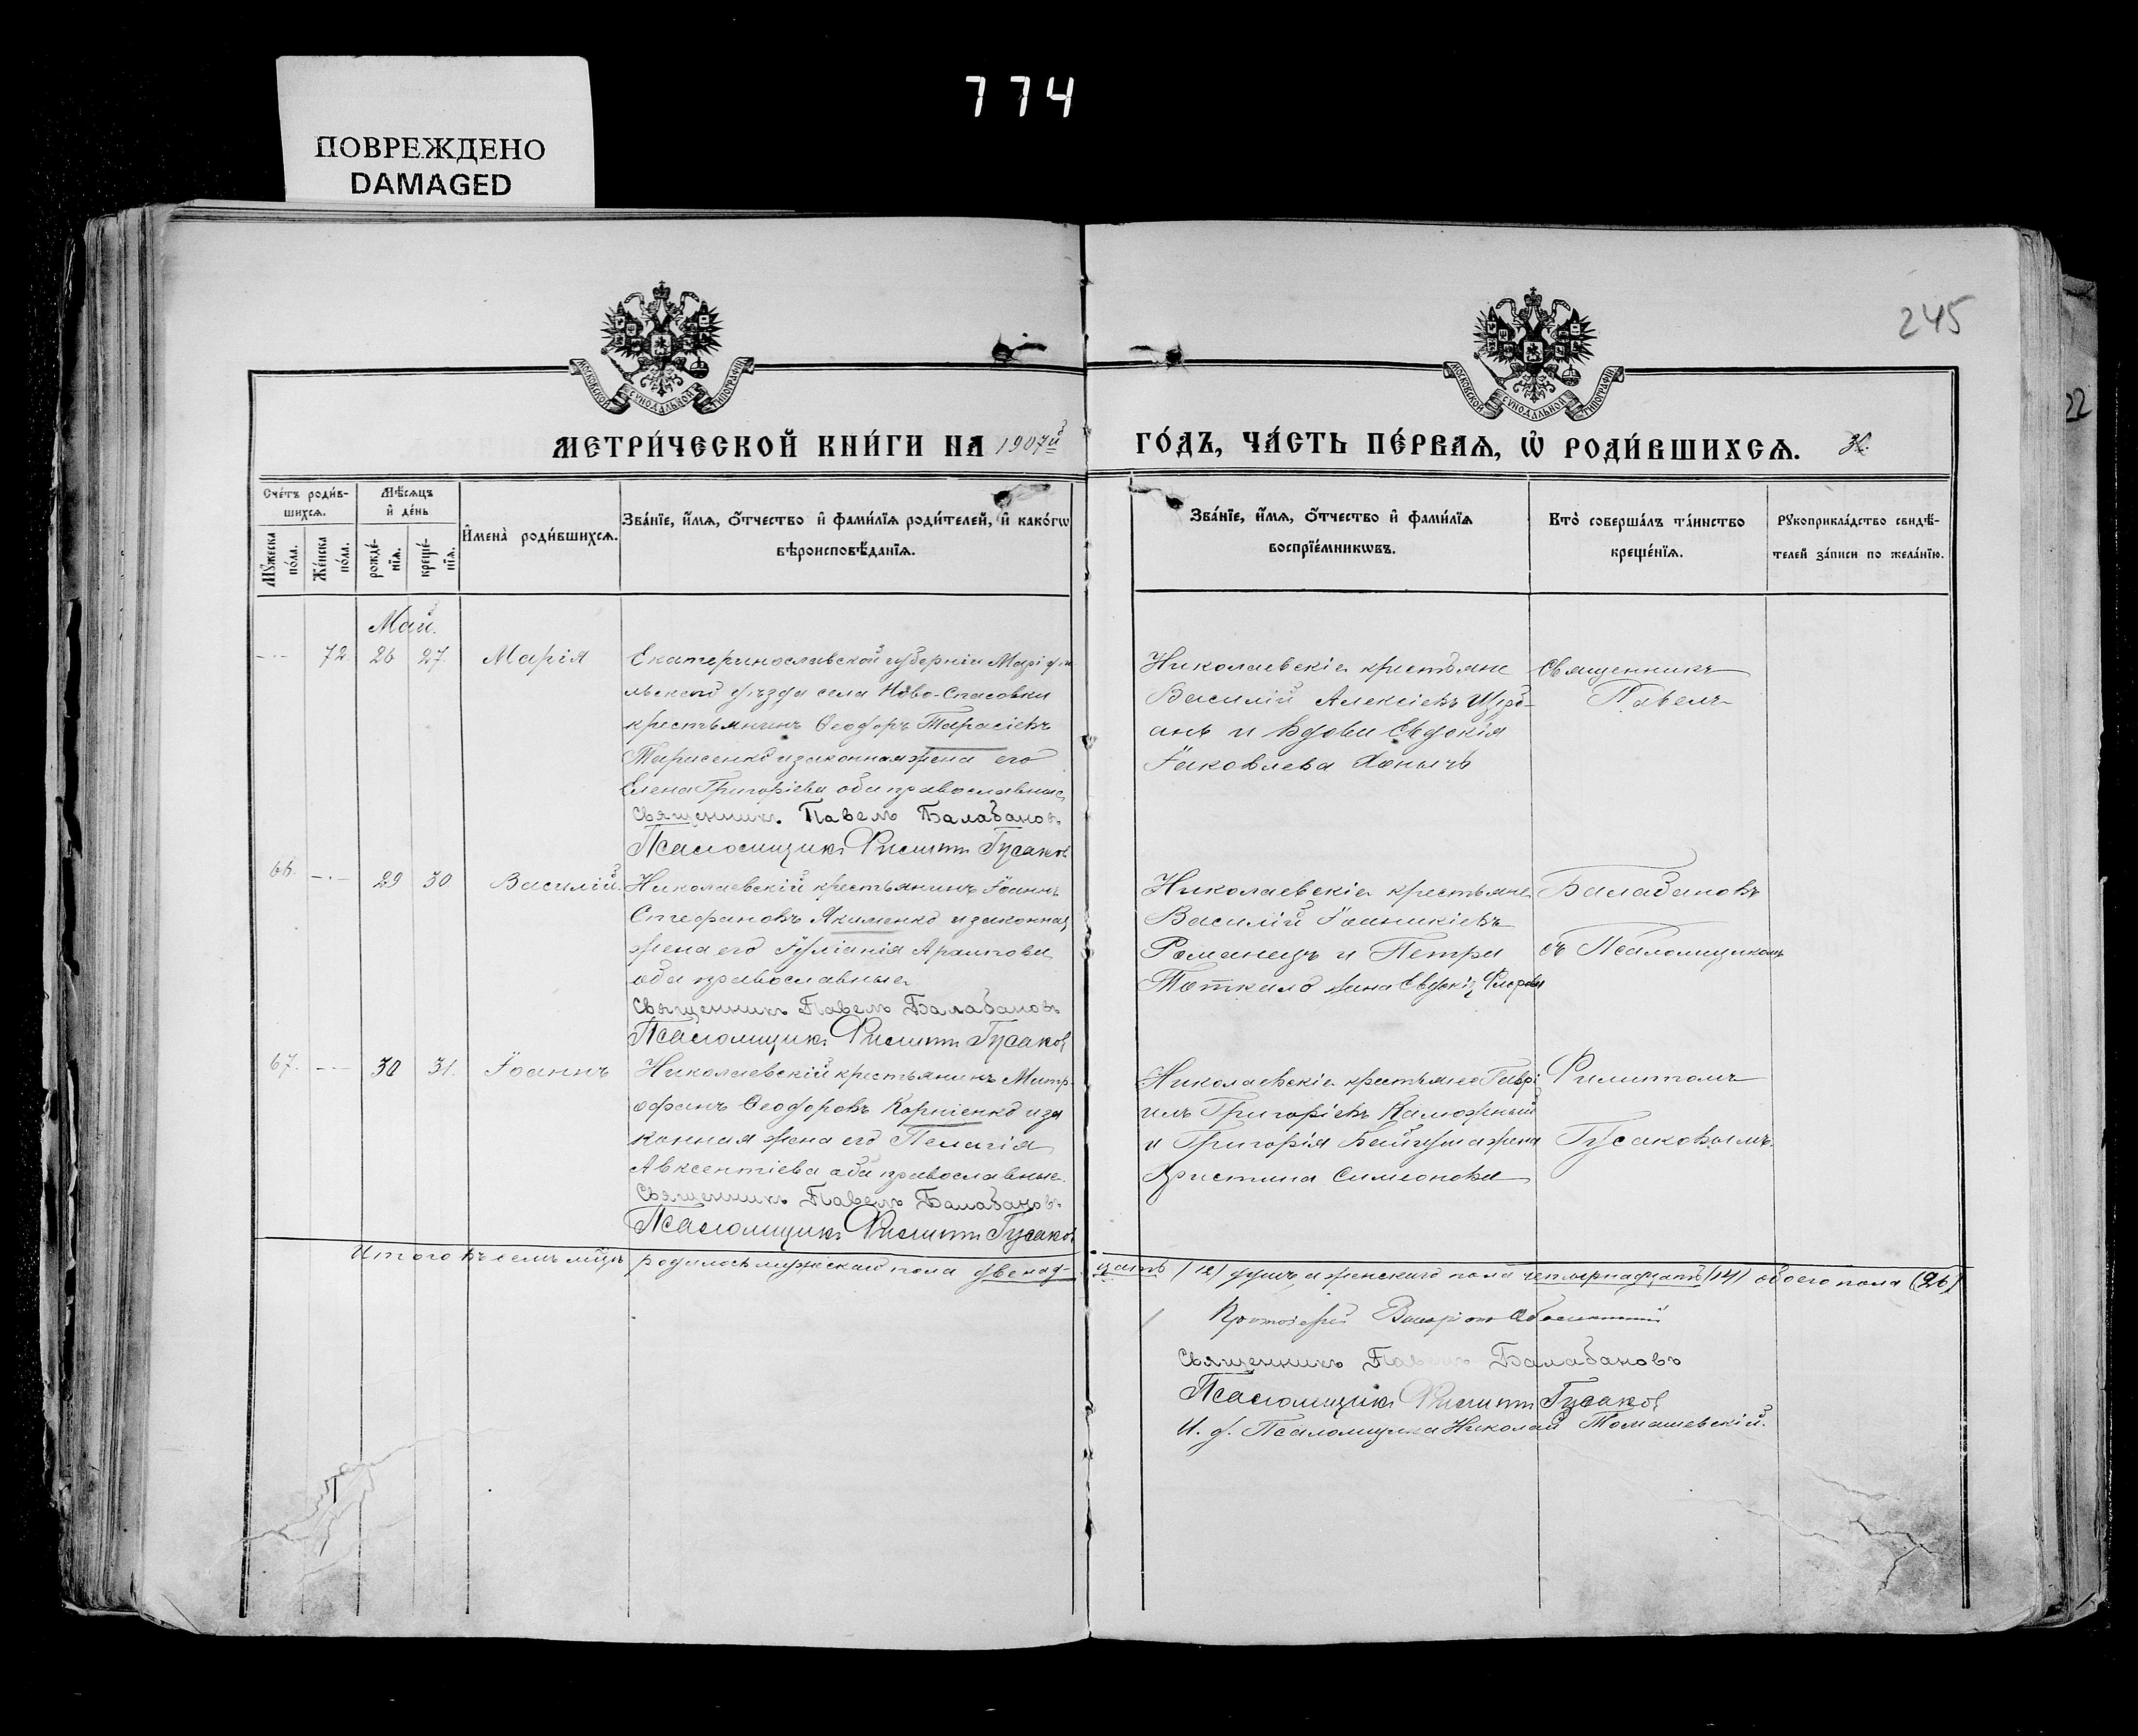 774
ПОВРЕЖДЕНО
DAMAGED
245
22
МОСКОВСКОЙ СѴНОДАЛЬНОЙ ТИПОГРАФІИ
МОСКОВСКОЙ СѴНОДАЛЬНОЙ ТИПОГРАФІИ
МЕТРИ́ЧЕСКОЙ КНИ́ГИ НА 1907й
ГО́ДЪ, ЧА́СТЬ ПЕ́РВАѦ, Ѽ РОДИ́ВШИХСѦ.
Сче́тъ роди́в-
шихсѧ.
Мꙋ́жеска по́ла.
Же́нска по́ла.
Мѣ́сѧцъ
и҆ де́нь
рожде́-нїѧ.
креще́-нїѧ.
И҆мена̀ роди́вшихсѧ.
Зва́нїе, и҆́мѧ, ѻ҆́тчество и҆ фами́лїѧ роди́телей, и҆ како́гѡ
вѣроисповѣ́данїѧ.
Зва́нїе, и҆́мѧ, ѻ҆́тчество и҆ фами́лїѧ
воспрїе́мникѡвъ.
Кто̀ соверша́лъ та́инство
креще́нїѧ.
Рꙋкоприкла́дство свидѣ́-
телей за́писи по жела́нїю.
Май.
72. 26 27. Марія
Екатеринославской губерніи Маріу-
льского уѣзда села Ново-Спасовки
крестьянинъ Ѳеодоръ Тарасіевъ
Тарасенко и законная жена его
Елена Григоріева оба православные
Священникъ Павелъ Балабановъ
Псаломщикъ Филиппъ Гусаковъ
Николаевскіе крестьяне
Василій Алексіевъ
и вдова Евдокія
Іаковлева
Священникъ
Павелъ
66. 29 30 Василій.
Николаевскій крестьянинъ Іоаннъ
Стефановъ Якименко и законная
жена его Іуліанія Архипова
оба православные
Священникъ Павелъ Балабановъ
Псаломщикъ Филиппъ Гусаковъ
Николаевскіе крестьяне
Василій Іоаникіевъ
Романецъ и Петра
жена Евдокія
Балабановъ
съ Псаломщикомъ
67. 30 31. Іоаннъ
Николаевскій крестьянинъ Митр-
офанъ Ѳеодоровъ Корніенко и за
конная жена его Пелагія
Авксентіева оба православные
Священникъ Павелъ Балабановъ
Псаломщикъ Филиппъ Гусаковъ
Николаевскіе крестьяне Гаврі
илъ Григоріевъ Калюжный
и Григорія жена
Христина Симеонова
Филиппомъ
Гусаковымъ.
Итого въ семъ м-цѣ родилось мужескаго пола двенад-
цать (12) душъ, и женскаго пола четырнадцать (14) обоего пола (26)
Протоіерей
Священникъ Павелъ Балабановъ
Псаломщикъ Филиппъ Гусаковъ
И. д. Псаломщика Николай Томашевскій.